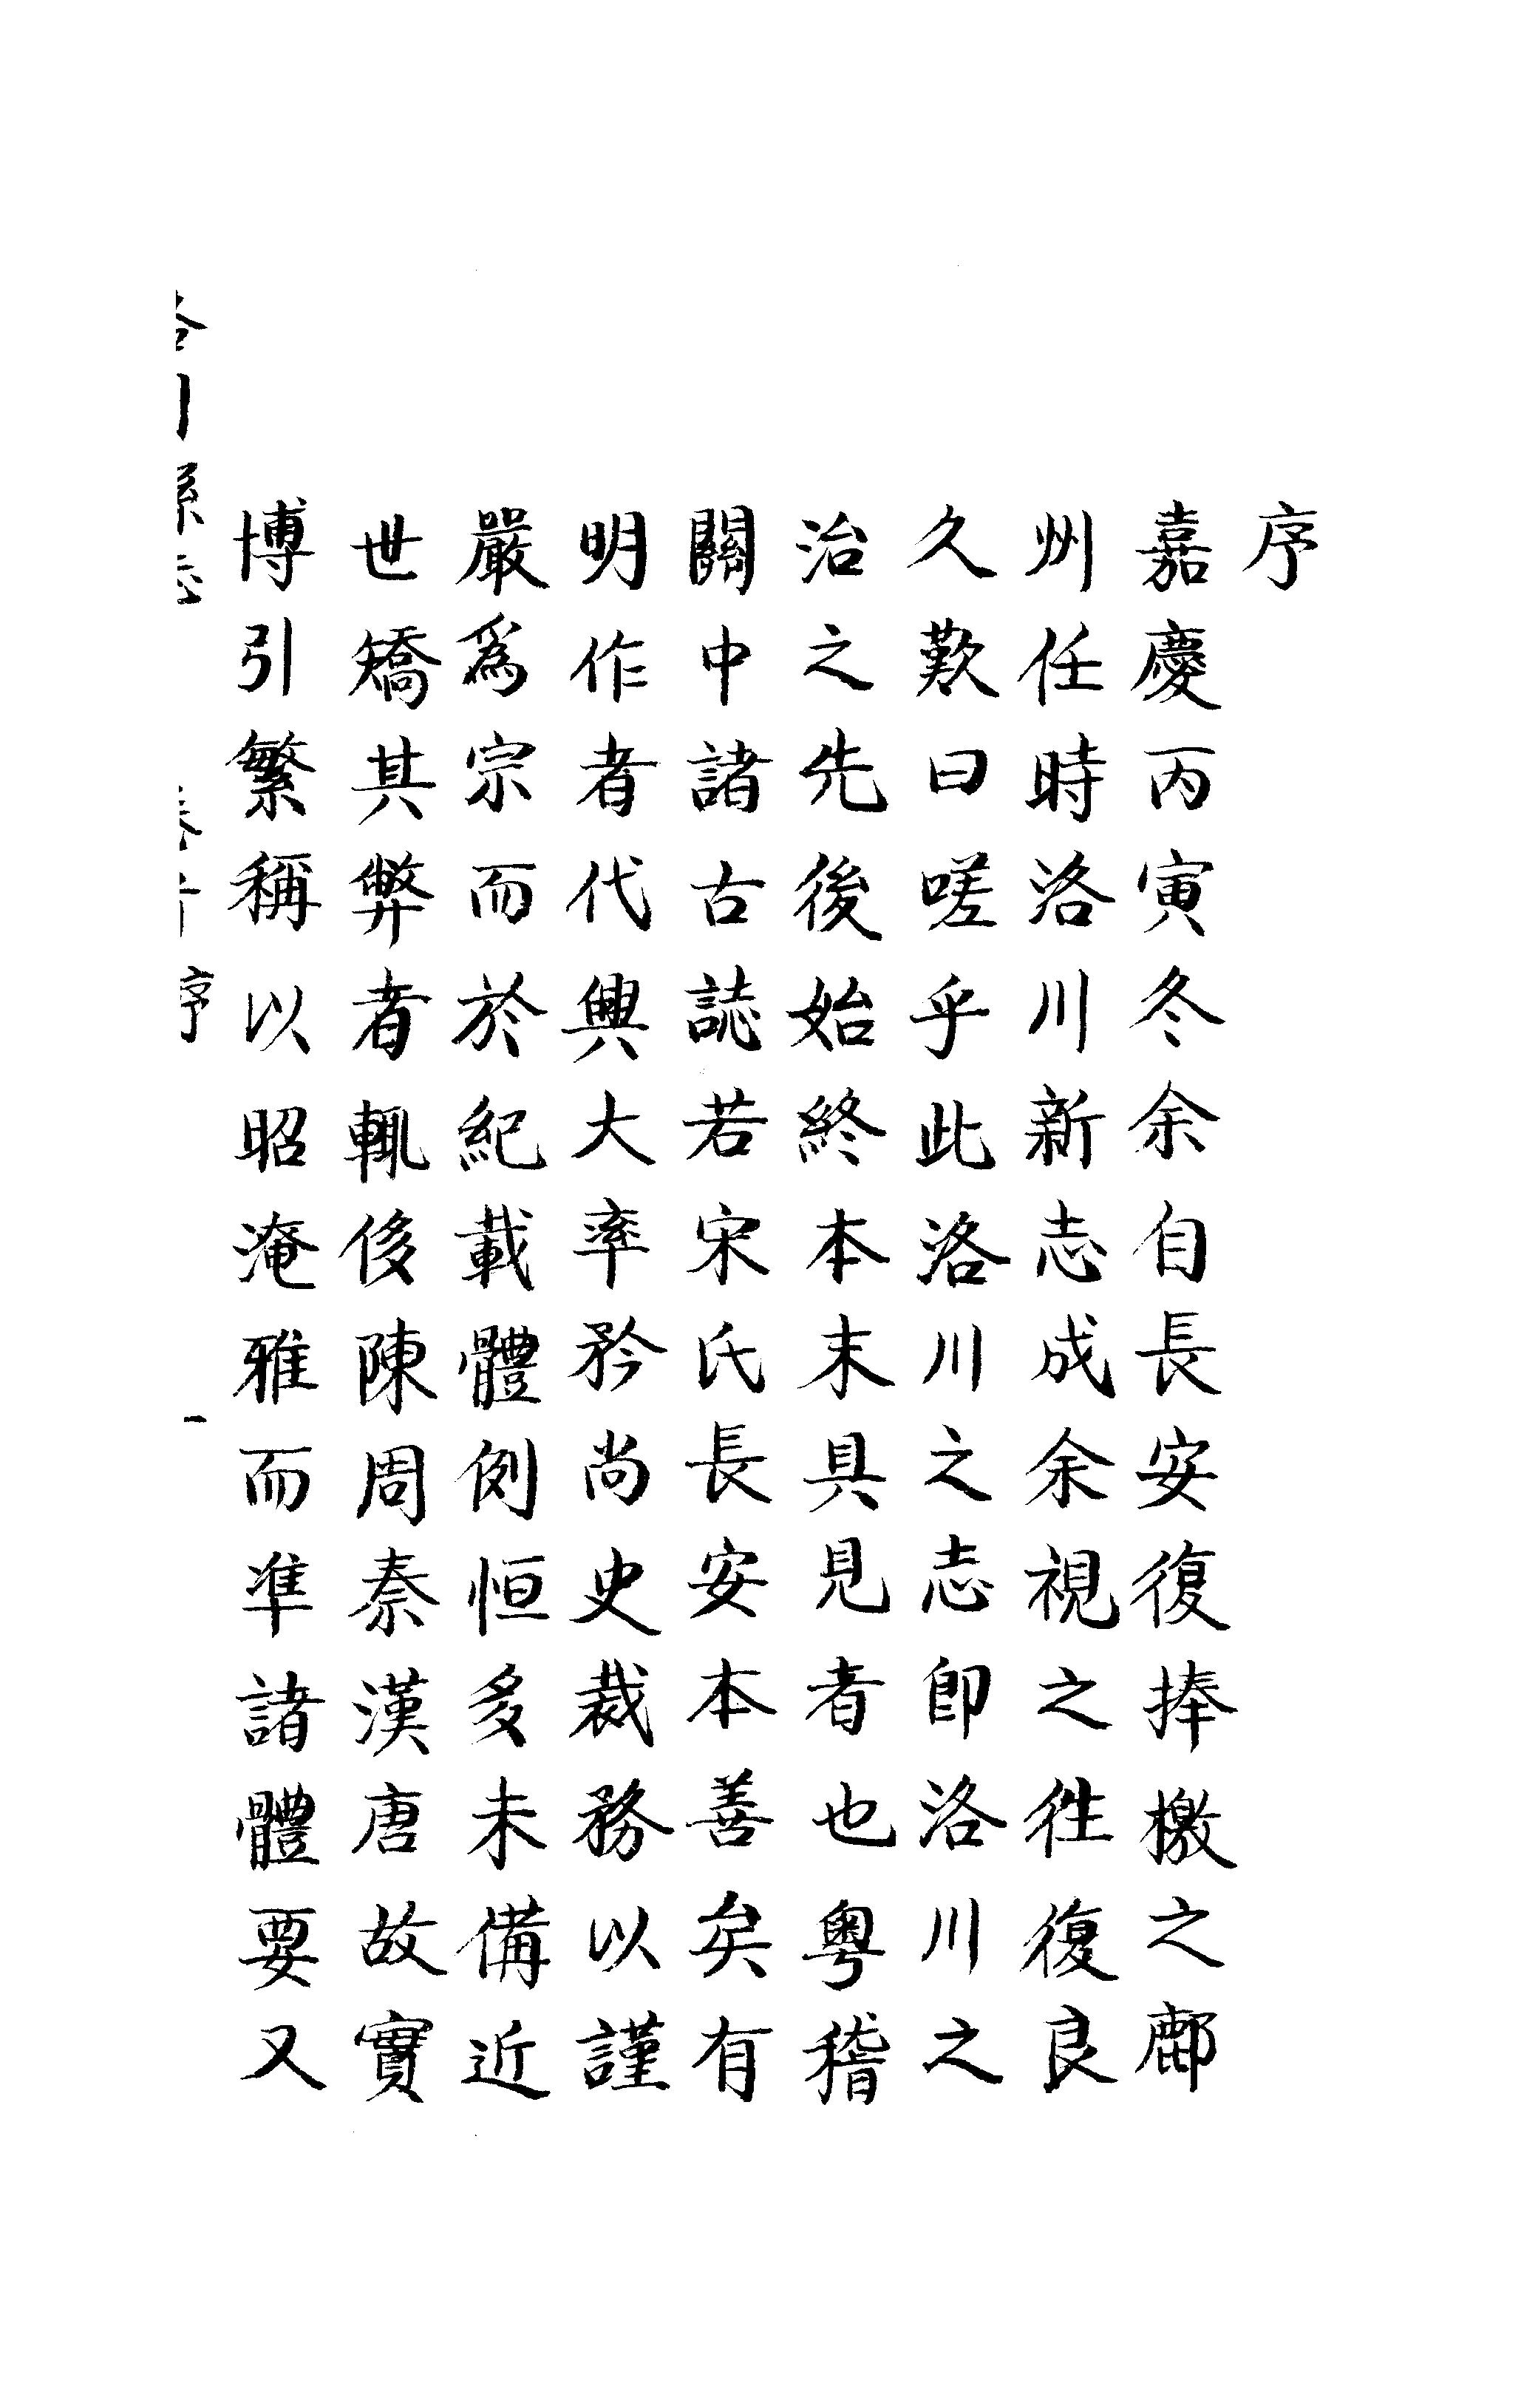 序
嘉慶丙寅冬余自長安復捧檄之鄜
州任時洛川新志成余視之徃復良
久歎曰嗟乎此洛川之志即洛川之
治之先後始終本末具見者也粵稽
關中諸古誌若宋氏長安本善矣有
明作者代興大率矜尚史裁務以謹
嚴爲宗而於紀載體例恒多未備近
世矯其弊者輒侈陳周秦漢唐故實
博引繁稱以昭淹雅而準諸體要又
洛川縣志 卷首 序 一